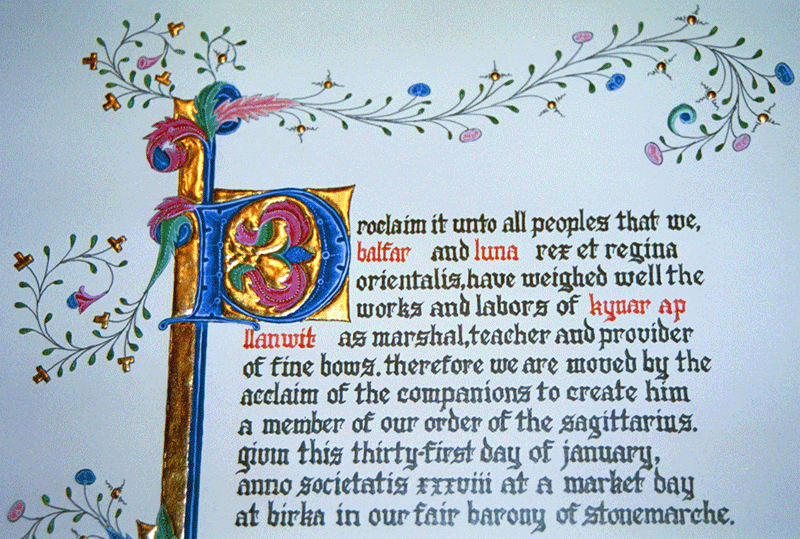 Proclaim it unto all peoples that we,
balfar and luna rex et regina
orientalis, have weighed well the
works and labors of kynar ap
llanwit as marshal, teacher and provider
of fine bows. therefore we are moved by the
acclaim of the companions to create him
a member of our order of the sagittarius.
givin this thirty-first day of january,
anno societatis xxxviii at a market day
at birka in our fair barony of stonemarche.